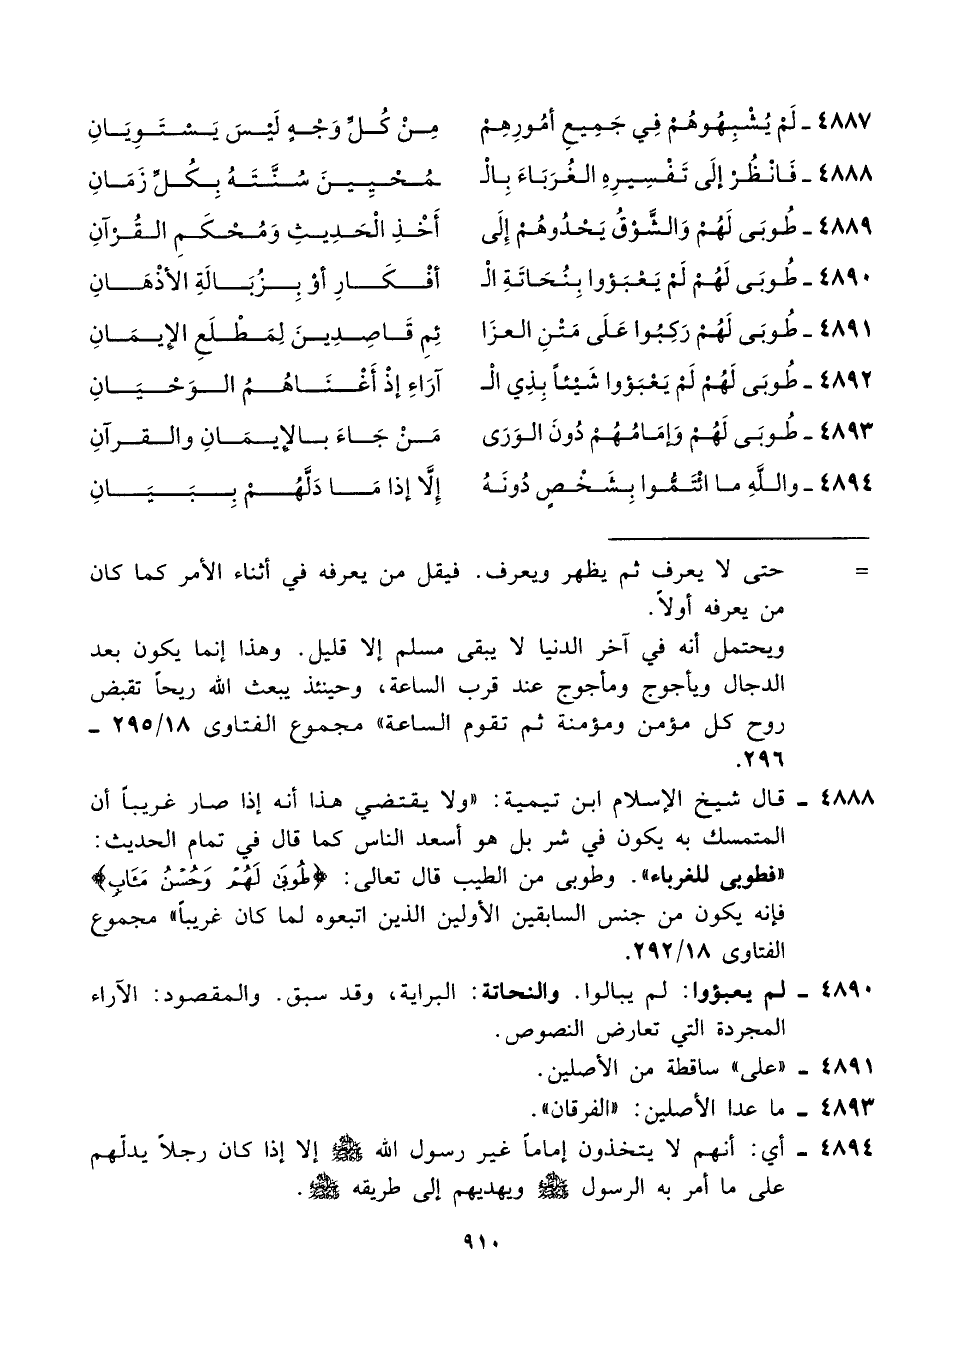 ٤٨٨٧ ـ لَمْ يُشْبِهُوهُمْ فِي جَمِيعِ أُمُورِهِمْ مِنْ كُلِّ وَجْهٍ لَيْسَ يَسْتَوِيَانِ
٤٨٨٨ ـ فَانْظُرْ إِلَى تَفْسِيرِهِ الغُرَبَاءَ بِالْـ ـمُحْيِينَ سُنَّتَهُ بِكُلِّ زَمَانِ
٤٨٨٩ ـ طُوبَى لَهُمْ وَالشَّوْقُ يَحْدُوهُمْ إِلَى أَخْذِ الْحَدِيثِ وَمُحْكَمِ القُرْآنِ
٤٨٩٠ ـ طُوبَى لَهُمْ لَمْ يَعْبَؤوا بِنُحَاتَةِ الْـ أفْكَارِ أَوْ بِزُبَالَةِ الأذْهَانِ
٤٨٩١ ـ طُوبَى لَهُمْ رَكِبُوا عَلَى مَتْنِ العزَا ئِمِ قَاصِدِينَ لِمَطْلَعِ الإيمَانِ
٤٨٩٢ ـ طُوبَى لَهُمْ لَمْ يَعْبَؤوا شَيْئاً بِذِي الْـ آرَاءِ إذْ أَغْنَاهُمُ الوَحْيَانِ
٤٨٩٣ ـ طُوبَى لَهُمْ وَإمَامُهُمْ دُونَ الوَرَى مَنْ جَاءَ بالإيمَانِ والقرآنِ
٤٨٩٤ ـ واللَّهِ ما ائْتَمُّوا بِشَخْصٍ دُونَهُ إِلَّا إذا مَا دَلَّهُمْ بِبَيَانِ
= حتى لا يعرف ثم يظهر ويعرف. فيقل من يعرفه في أثناء الأمر كما كان
من يعرفه أولاً.
ويحتمل أنه في آخر الدنيا لا يبقى مسلم إلا قليل. وهذا إنما يكون بعد
الدجال ويأجوج ومأجوج عند قرب الساعة، وحينئذ يبعث الله ريحاً تقبض
روح كل مؤمن ومؤمنة ثم تقوم الساعة» مجموع الفتاوى ٢٩٥/١٨ ـ
٢٩٦.
٤٨٨٨ ـ قال شيخ الإسلام ابن تيمية: «ولا يقتضي هذا أنه إذا صار غريباً أن
المتمسك به يكون في شر بل هو أسعد الناس كما قال في تمام الحديث:
«فطوبى للغرباء». وطوبى من الطيب قال تعالى: ﴿طُوبَىٰ لَهُمْ وَحُسْنُ مَـَٔابٍ﴾
فإنه يكون من جنس السابقين الأولين الذين اتبعوه لما كان غريباً» مجموع
الفتاوى ٢٩٢/١٨.
٤٨٩٠ ـ لم يعبؤوا: لم يبالوا. والنحاتة: البراية، وقد سبق. والمقصود: الآراء
المجردة التي تعارض النصوص.
٤٨٩١ ـ «على» ساقطة من الأصلين.
٤٨٩٣ ـ ما عدا الأصلين: «الفرقان».
٤٨٩٤ ـ أي: أنهم لا يتخذون إماماً غير رسول الله ﷺ إلا إذا كان رجلاً يدلّهم
على ما أمر به الرسول ﷺ ويهديهم إلى طريقه ﷺ.
٩١٠